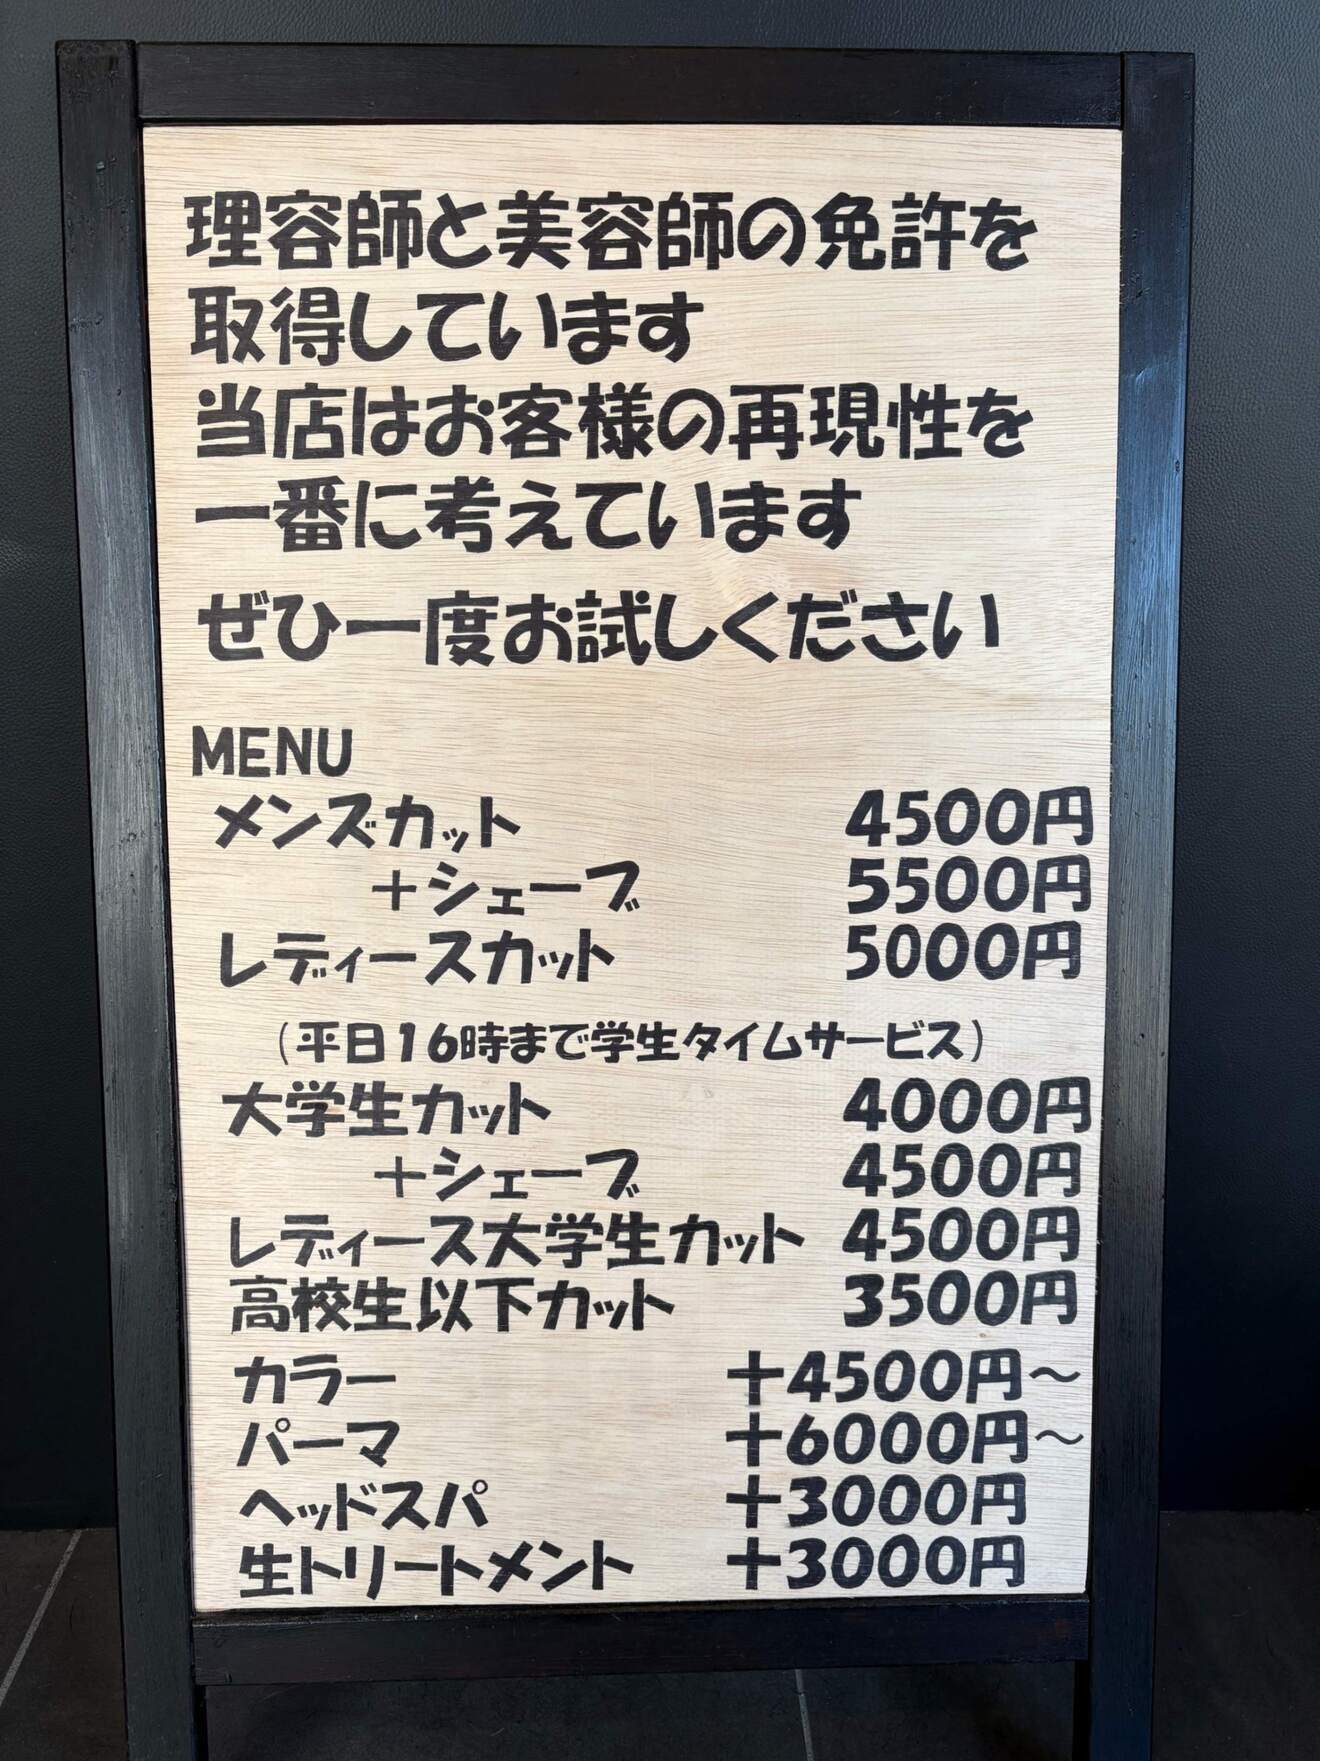 理容師と美容師の免許を
取得しています
当店はお客様の再現性を
一番に考えています
ぜひ一度お試しください
MENU
メンズカット 4500円
＋シェーブ 5500円
レディースカット 5000円
（平日16時まで学生タイムサービス）
大学生カット 4000円
＋シェーブ 4500円
レディース大学生カット 4500円
高校生以下カット 3500円
カラー ＋4500円～
パーマ ＋6000円～
ヘッドスパ ＋3000円
生トリートメント ＋3000円